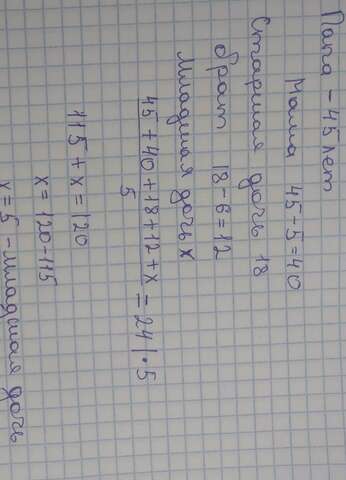 Папа - 45 лет
Мама 45-5=40
Старшая дочь 18
брат 18-6=12
младшая дочь x
45+40+18+12+x / 5 = 24 |·5
115+x=120
x=120-115
x=5 - младшая дочь